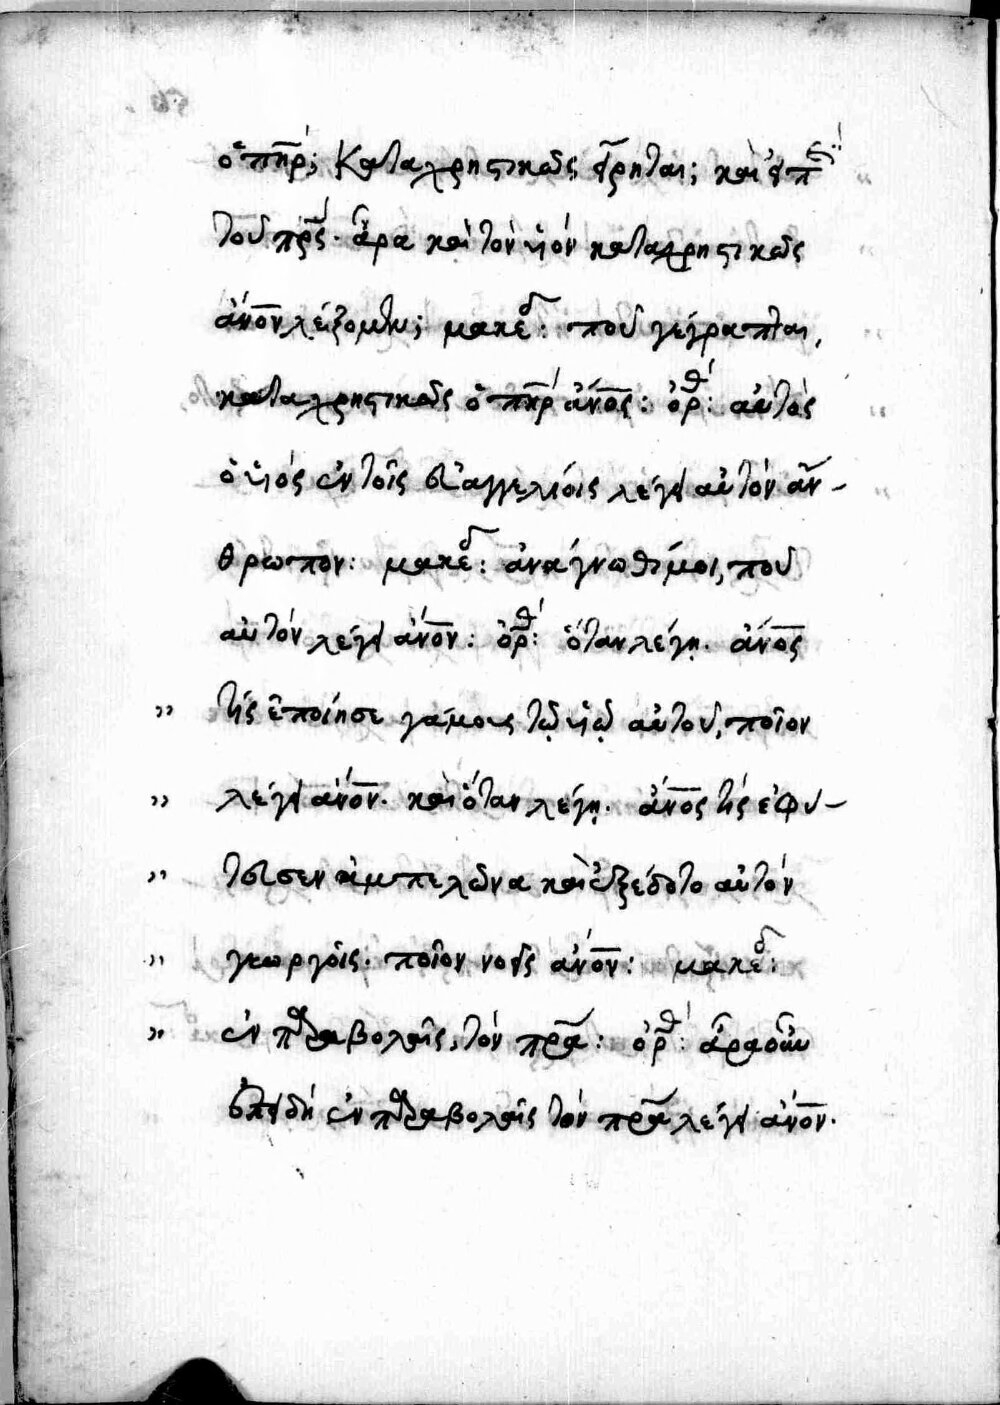 ὁ π̅η̅ρ̅; καταχρηστικῶς εἴρηται; καὶ εἰ
τοῦ π̅ρ̅ς̅. ἆρα καὶ τὸν υἱὸν καταχρηστικῶς
ἄν̅ο̅ν̅ λέξομεν; μακεδ: ποῦ γέγραπται,
καταχρηστικῶς ὁ π̅η̅ρ̅ ἄν̅ο̅ς̅: ὀρθ: αὐτὸς
ὁ υἱὸς ἐν τοῖς εὐαγγελίοις λέγει αὐτὸν ἄν-
θρωπον: μακεδ: ἀνάγνωθί μοι, ποῦ
αὐτὸν λέγει ἄν̅ο̅ν̅: ὀρθ: ὅταν λέγῃ. ἄν̅ο̅ς̅
" τίς ἐποίησε γάμους τῷ υἱῷ αὐτοῦ, ποῖον
" λέγει ἄν̅ο̅ν̅. καὶ ὅταν λέγῃ. ἄν̅ο̅ς̅ τίς ἐφύ-
" τευσεν ἀμπελῶνα καὶ ἐξέδοτο αὐτὸν
" γεωργοῖς. ποῖον νοεῖς ἄν̅ο̅ν̅: μακεδ:
" ἐν παραβολαῖς, τὸν π̅ρ̅α̅: ὀρθ: ἆρα οὖν
ἐπειδὴ ἐν παραβολαῖς τὸν π̅ρ̅α̅ λέγει ἄν̅ο̅ν̅.